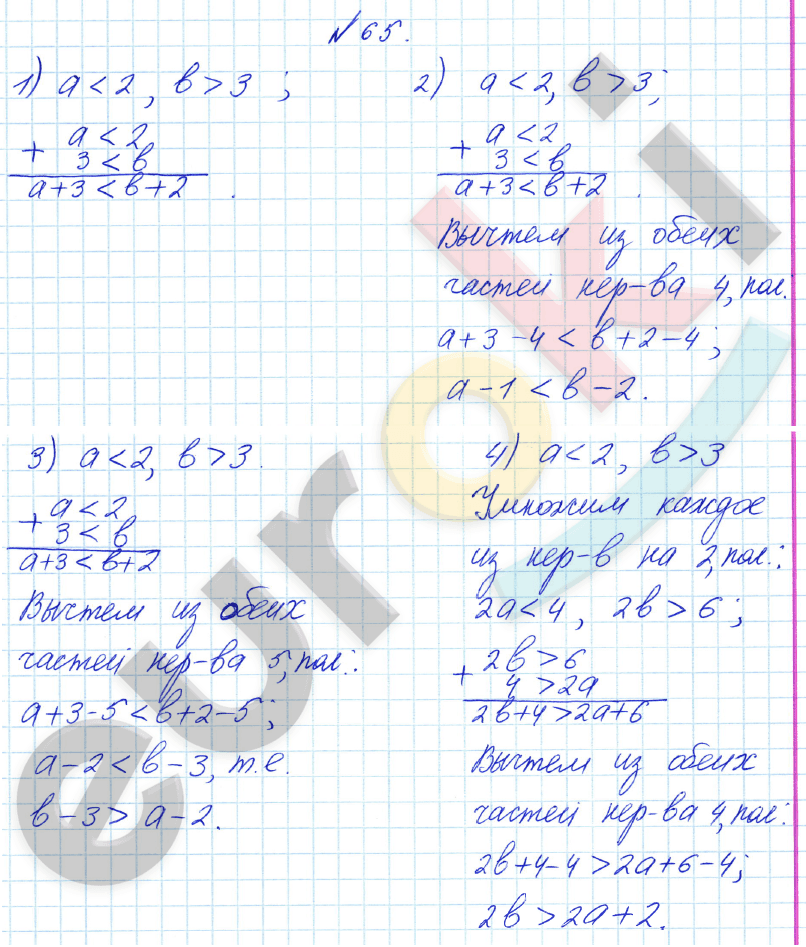 № 65.
1) a < 2, в > 3 ;
+ a < 2
3 < в
a + 3 < в + 2 .
2) a < 2, в > 3;
+ a < 2
3 < в
a + 3 < в + 2 .
Вычтем из обеих
частей нер-ва 4, пол.:
a + 3 - 4 < в + 2 - 4 ;
a - 1 < в - 2 .
3) a < 2, в > 3.
+ a < 2
3 < в
a + 3 < в + 2
Вычтем из обеих
частей нер-ва 5, пол.:
a + 3 - 5 < в + 2 - 5 ;
a - 2 < в - 3, т.е.
в - 3 > a - 2 .
4) a < 2, в > 3
Умножим каждое
из нер-в на 2, пол.:
2a < 4, 2в > 6 ;
+ 2в > 6
4 > 2a
2в + 4 > 2a + 6
Вычтем из обеих
частей нер-ва 4, пол.:
2в + 4 - 4 > 2a + 6 - 4 ;
2в > 2a + 2.
euroki